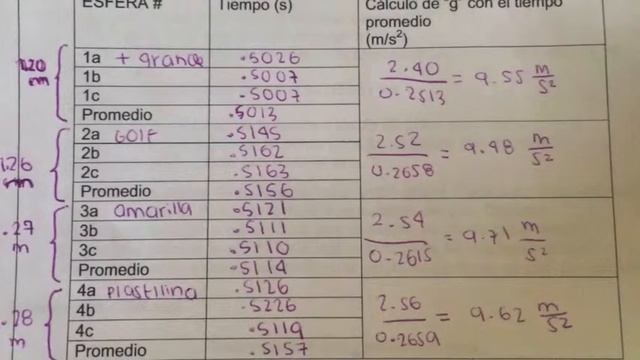 ESFERA #
Tiempo (s)
Cálculo de "g" con el tiempo
promedio
(m/s²)
1.20
m
1a + grande .5026
1b .5007
1c .5007
Promedio .5013
2.40 / 0.2513 = 9.55 m/s²
1.26
m
2a Golf .5145
2b .5162
2c .5163
Promedio .5156
2.52 / 0.2658 = 9.48 m/s²
.27
m
3a amarilla .5121
3b .5111
3c .5110
Promedio .5114
2.54 / 0.2615 = 9.71 m/s²
.28
m
4a Plastilina .5126
4b .5226
4c .5119
Promedio .5157
2.56 / 0.2659 = 9.62 m/s²